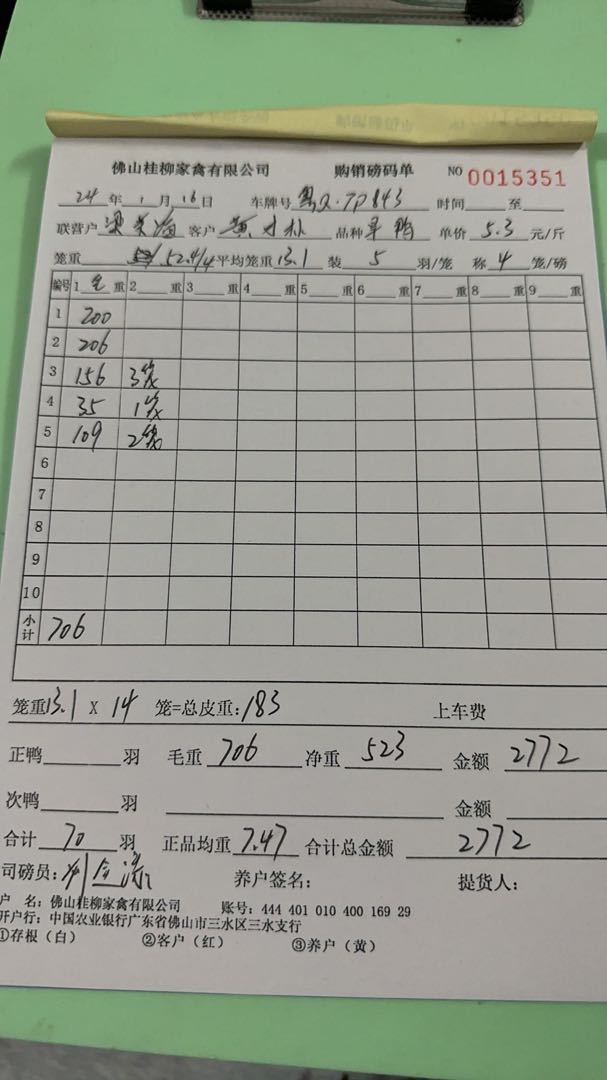 佛山桂柳家禽有限公司 购销磅码单 NO 0015351
24年1月16日 车牌号 粤Q·7P843 时间 至
联营户 客户 黄 品种 旱鸭 单价 5.3 元/斤
笼重 52.4/4 平均笼重 13.1 装 5 羽/笼 称 4 笼/磅
编号 1 毛 重 2 重 3 重 4 重 5 重 6 重 7 重 8 重 9 重
1 200
2 206
3 156 3笼
4 35 1笼
5 109 2笼
6
7
8
9
10
小计 706
笼重 13.1 X 14 笼=总皮重: 183 上车费
正鸭 羽 毛重 706 净重 523 金额 2772
次鸭 羽 金额
合计 70 羽 正品均重 7.47 合计总金额 2772
司磅员: 养户签名: 提货人:
户 名: 佛山桂柳家禽有限公司 账号: 444 401 010 400 169 29
开户行: 中国农业银行广东省佛山市三水区三水支行
①存根（白） ②客户（红） ③养户（黄）